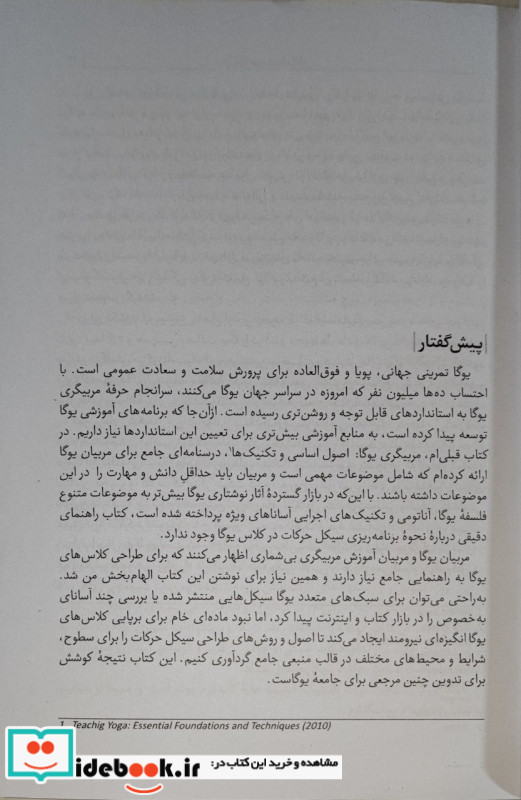 پیش‌گفتار
یوگا تمرینی جهانی، پویا و فوق‌العاده برای پرورش سلامت و سعادت عمومی است. با
احتساب ده‌ها میلیون نفر که امروزه در سراسر جهان یوگا می‌کنند، سرانجام حرفهٔ مربیگری
یوگا به استانداردهای قابل توجه و روشن‌تری رسیده است. ازآن‌جا که برنامه‌های آموزشی یوگا
توسعه پیدا کرده است، به منابع آموزشی بیش‌تری برای تعیین این استانداردها نیاز داریم. در
کتاب قبلی‌ام، مربیگری یوگا: اصول اساسی و تکنیک‌ها۱، درسنامه‌ای جامع برای مربیان یوگا
ارائه کرده‌ام که شامل موضوعات مهمی است و مربیان باید حداقل دانش و مهارت را در این
موضوعات داشته باشند. با این‌که در بازار گستردهٔ آثار نوشتاری یوگا بیش‌تر به موضوعات متنوع
فلسفهٔ یوگا، آناتومی و تکنیک‌های اجرایی آساناهای ویژه پرداخته شده است، کتاب راهنمای
دقیقی دربارهٔ نحوهٔ برنامه‌ریزی سیکل حرکات در کلاس یوگا وجود ندارد.
مربیان یوگا و مربیان آموزش مربیگری بی‌شماری اظهار می‌کنند که برای طراحی کلاس‌های
یوگا به راهنمایی جامع نیاز دارند و همین نیاز برای نوشتن این کتاب الهام‌بخش من شد.
به‌راحتی می‌توان برای سبک‌های متعدد یوگا سیکل‌هایی منتشر شده یا بررسی چند آسانای
به‌خصوص را در بازار کتاب و اینترنت پیدا کرد، اما نبود ماده‌ای خام برای برپایی کلاس‌های
یوگا انگیزه‌ای نیرومند ایجاد می‌کند تا اصول و روش‌های طراحی سیکل حرکات را برای سطوح،
شرایط و محیط‌های مختلف در قالب منبعی جامع گردآوری کنیم. این کتاب نتیجهٔ کوشش
برای تدوین چنین مرجعی برای جامعهٔ یوگاست.
1. Teachig Yoga: Essential Foundations and Techniques (2010)
مشاهده و خرید این کتاب در:
idebook.ir